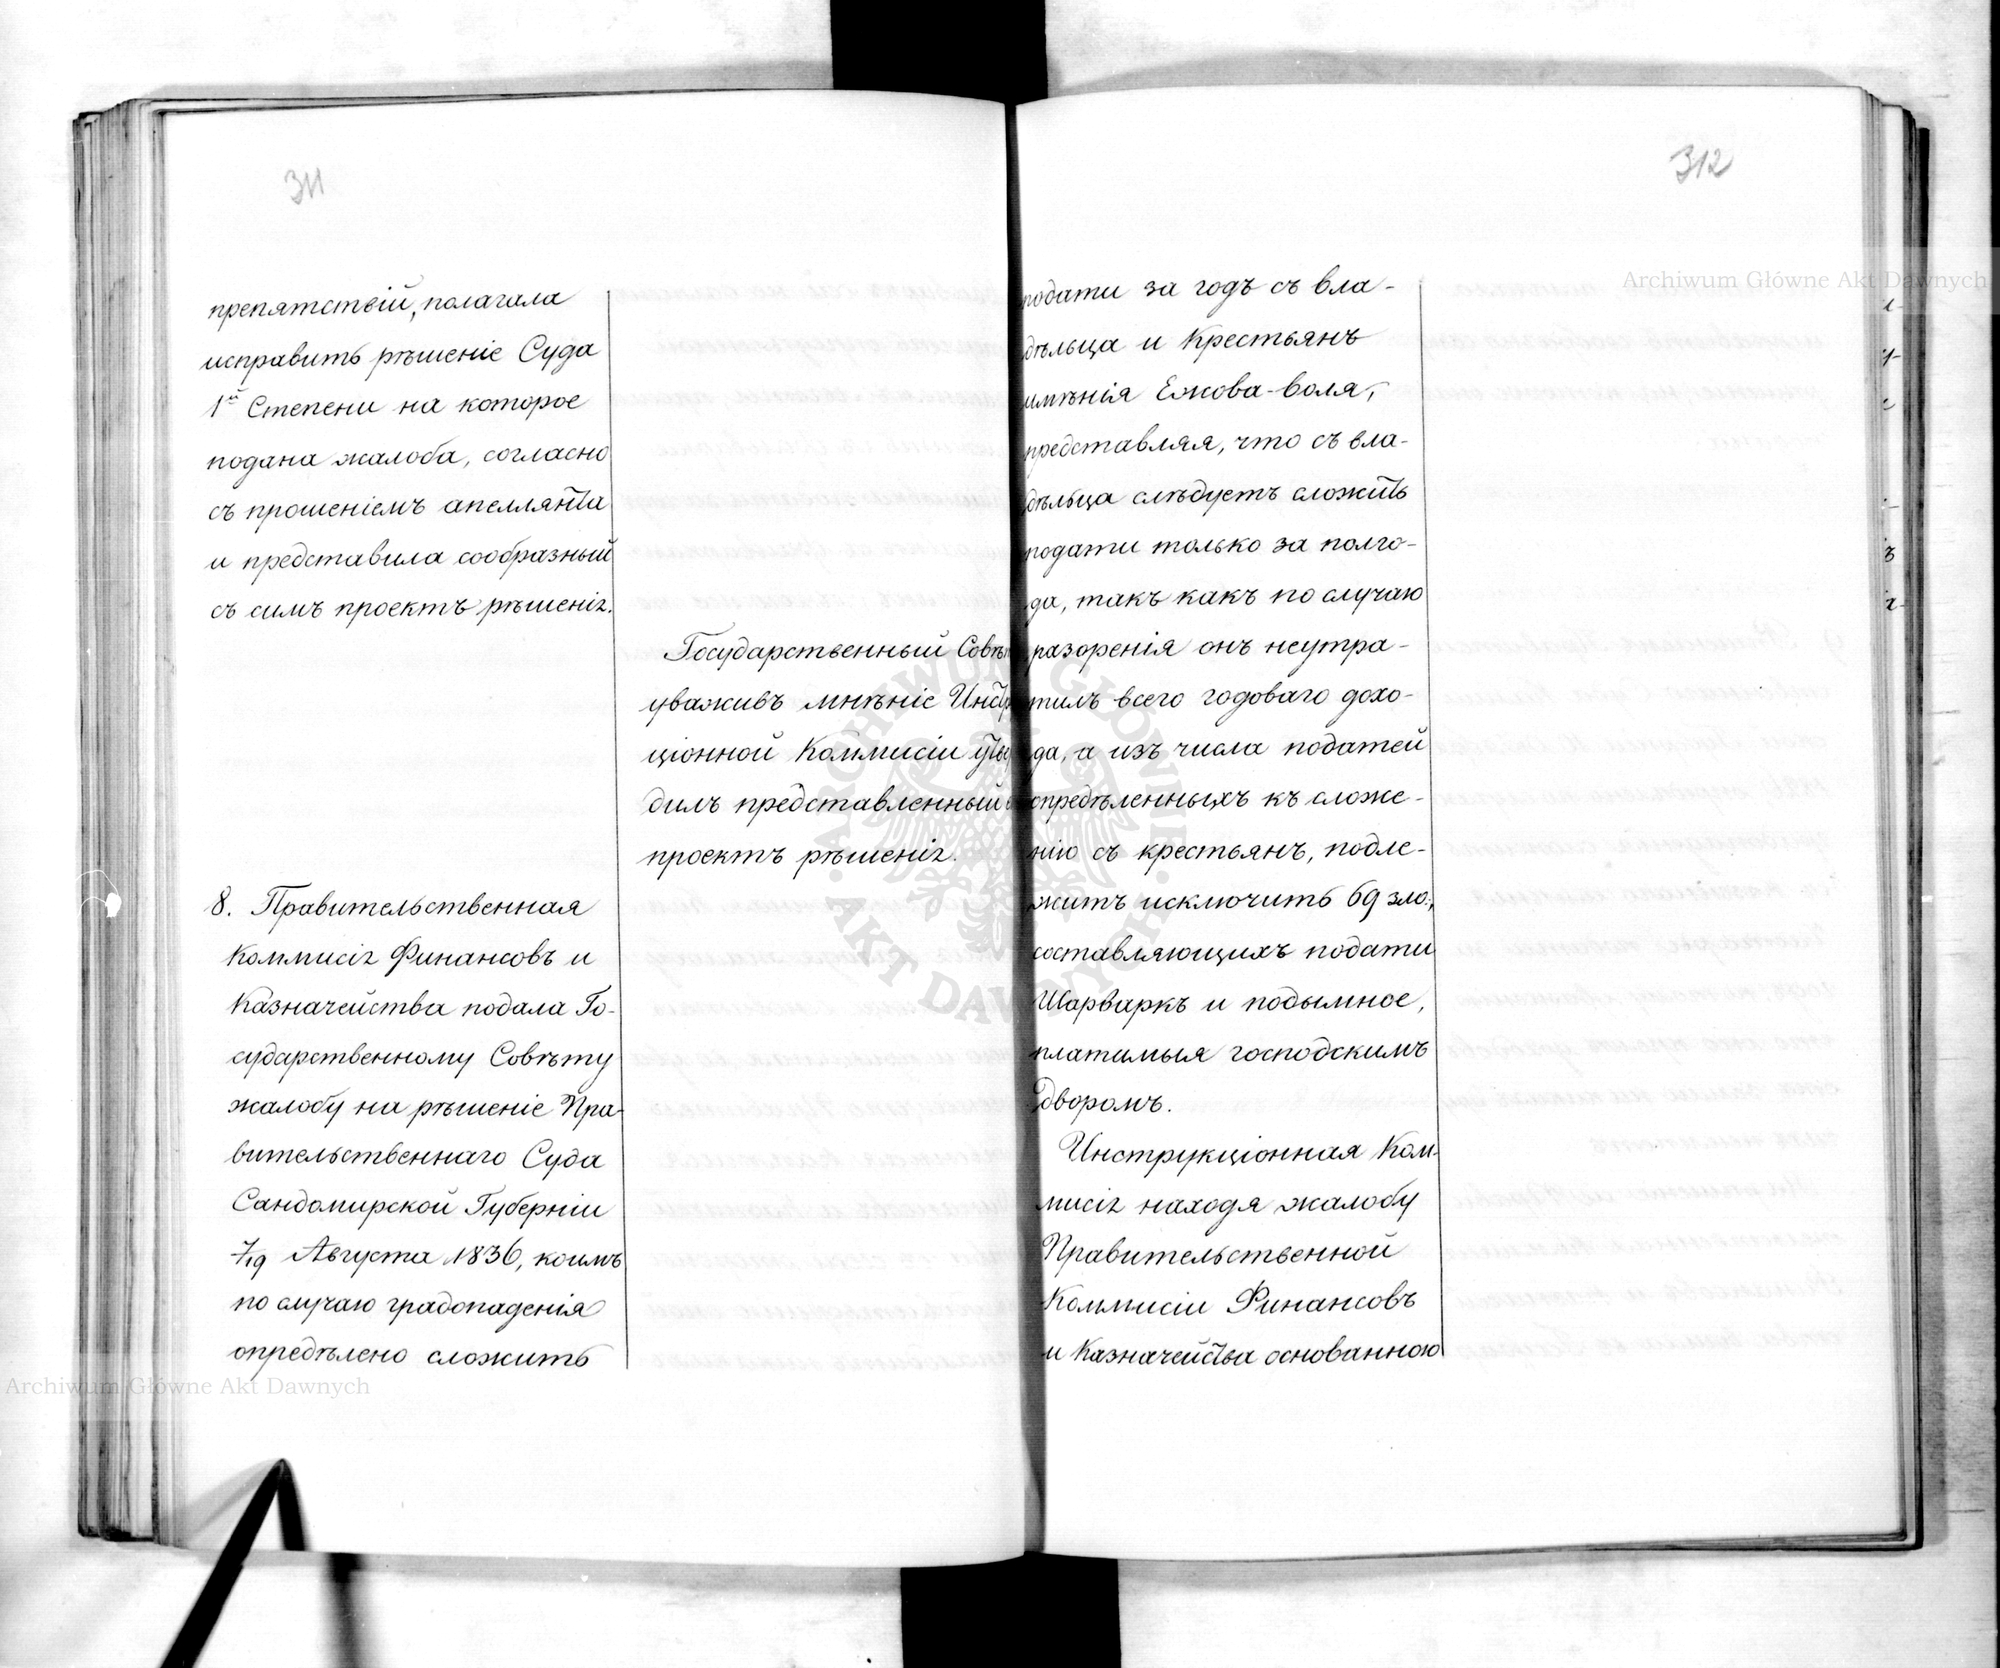 311
препятствій, полагала
исправить рѣшеніе Суда
1й Степени на которое
подана жалоба, согласно
съ прошеніемъ апеллянта
и представила сообразный
съ симъ проектъ рѣшенія.
Государственный Совѣт
уваживъ мнѣніе Инстр
ціонной Коммисіи утвер
дилъ представленный
проектъ рѣшенія.
8. Правительственная
Коммисія Финансовъ и
Казначейства подала Го-
сударственному Совѣту
жалобу на рѣшеніе Пра-
вительственнаго Суда
Сандомирской Губерніи
7/19 Августа 1836, коимъ
по случаю градопаденія
опредѣлено сложить
312
подати за годъ съ вла-
дѣльца и Крестьянъ
имѣнія Ежова-воля,
представляя, что съ вла-
дѣльца слѣдуетъ сложить
подати только за полго-
да, такъ какъ по случаю
разоренія онъ неутра-
тилъ всего годоваго дохо-
да, а изъ числа податей
опредѣленныхъ къ сложе-
нію съ крестьянъ, подле-
житъ исключить 69 зло.,
составляющихъ подати
Шарваркъ и подымное,
платимыя господскимъ
дворомъ.
Инструкціонная Ком-
мисія находя жалобу
Правительственной
Коммисіи Финансовъ
и Казначейства основанною
Archiwum Główne Akt Dawnych
Archiwum Główne Akt Dawnych
ARCHIWUM GŁÓWNE AKT DAWNYCH